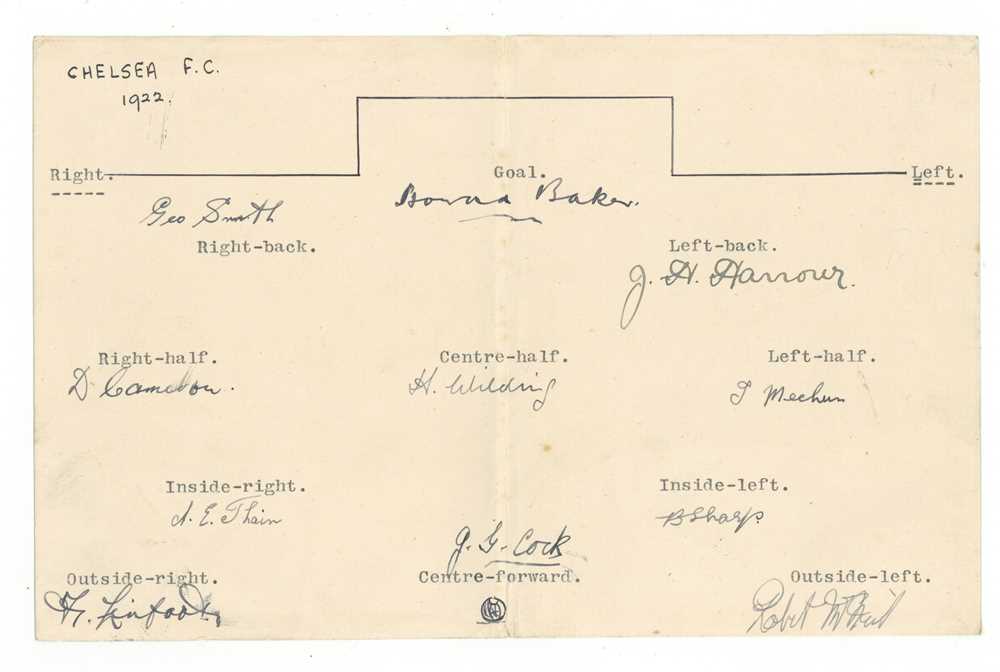 CHELSEA F.C.
1922.
Right.
Goal.
Left.
Geo Smith
Howard Baker.
Right-back.
Left-back.
J. H. Harrow.
Right-half.
Centre-half.
Left-half.
D Cameron.
H. Wilding
T Meehan
Inside-right.
Inside-left.
A. E. Thain
B Sharp
J. G. Cock
Outside-right.
Centre-forward.
Outside-left.
H. Linfoot
Robert McNeil